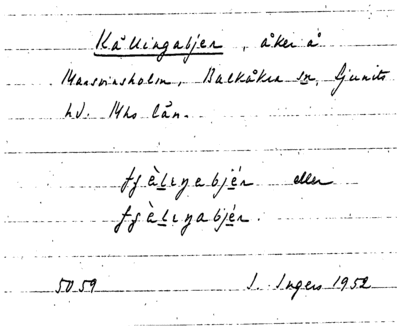 Kållingabjer, åker å
Marsvinsholm, Balkåkra sn, Ljunits
hd. Mhs län.
fɟèlıŋabjér eller
fɟèlıŋabjér.
5059 I. Ingers 1952